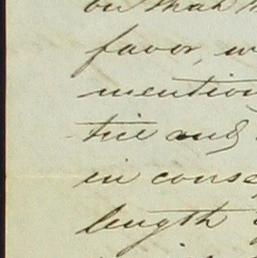 on that
favor, w
mention
tice and
in conse
length